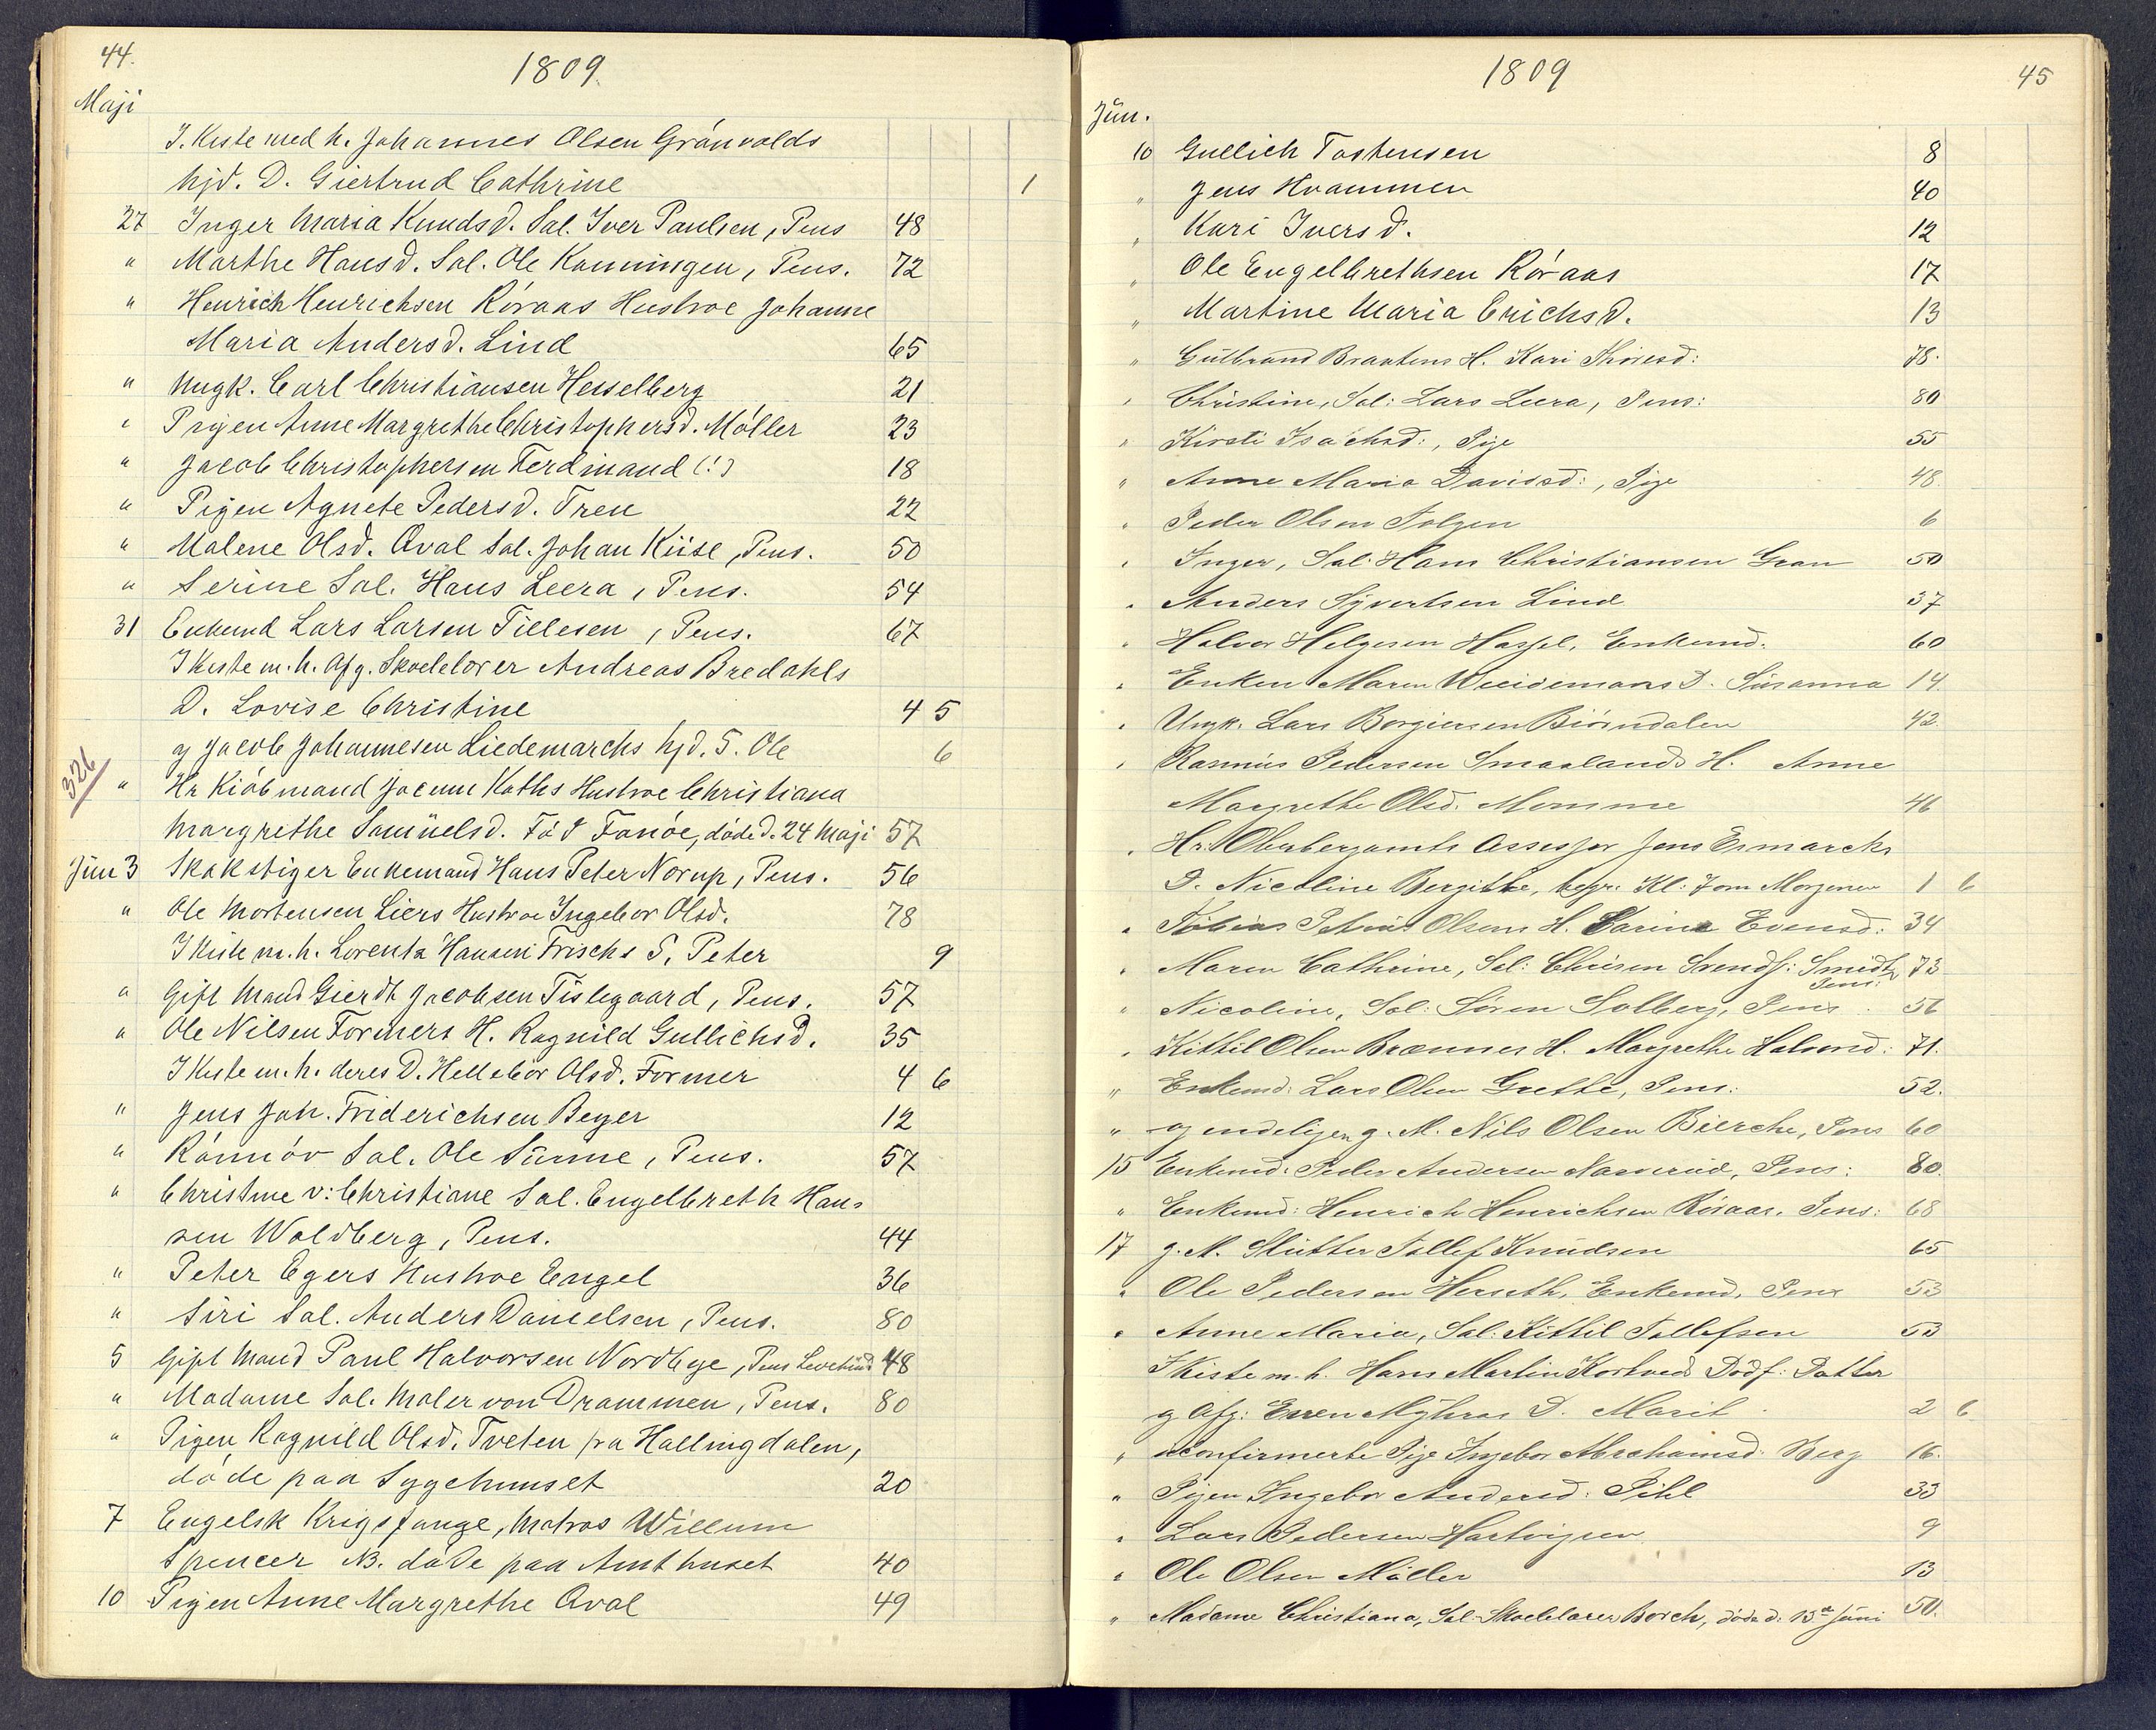 44.
1809.
Maji
I. Kiste med h. Johannes Olsen Grönvolds
hjd. D. Giertrud Cathrine 1
27 Inger Maria Knudsd. Sal. Iver Paulsen, Pens 48
" Marthe Hansd. Sal. Ole Konningen, Pens. 72
" Henrich Henrichsen Röraas Hustroe Johanne
Maria Andersd. Lind 65
" Ungk. Carl Christiansen Hesselberg 21
" Pigen Anne Margrethe Christophersd. Möller 23
" Jacob Christophersen Ferdinand (!) 18
" Pigen Agnete Pedersd. Tren 22
" Malene Olsd. Qval Sal. Johan Kiise, Pens. 50
" Serine Sal. Hans Leera, Pens. 54
31 Enkemd Lars Larsen Tillesen, Pens. 67
I Kiste m. h. Afg. Skoelelærer Andreas Bredahls
D. Lovise Christine 4 5
og Jacob Johannesen Liedemarchs hjd. S. Ole 6
326
" Hr Kiöbmand Jocum Kaths Hustroe Christiana
Margrethe Samüelsd. Föd Fanöe, döde d. 24 Maji 57
Jün 3 Skakstiger Enkemand Hans Peter Norup, Pens. 56
" Ole Mortensen Liers Hustroe Ingebor Olsd. 78
I Kiste m. h. Lorentz Hansen Frischs S. Peter 9
" Gift Mand Gierdt Jacobsen Tislegaard, Pens. 57
" Ole Nilsen Formers H. Ragnild Gullichsd. 35
I Kiste m. h. deres D. Hellebor Olsd. Former 4 6
" Jens Joh. Friderichsen Beyer 12
" Rönnöv Sal. Ole Sünne, Pens. 57
" Christine v: Christiane Sal. Engelbreth Han-
sen Woldberg, Pens. 44
" Peter Egers Hustroe Engel 36
" Siri Sal. Anders Danielsen, Pens. 80
5 Gift Mand Paul Halvorsen Nordbye, Pens 48
" Madame Sal. Maler von Drammen, Pens. 80
" Pigen Ragnild Olsd. Tveten fra Hallingdalen,
döde paa Sygehuuset 20
7 Engelsk Krigsfange, Matros Willum
Spencer NB. döde paa Amthuset 40
10 Pigen Anne Margrethe Qval 49
1809
45
Jün.
10 Gullich Tostensen 8
" Jens Hvammen 40
" Kari Iversd. 12
" Ole Engelbrethsen Röraas 17
" Martine Maria Erichsd. 13
" Gulbrand Braatens H. Kari Thoresd: 78.
" Christine, Sal: Lars Leera, Pens: 80
" Kirsti Isachsd:, Pige 55
" Anne Maria Davidsd:, Pige 48.
" Peder Olsen Tolgen 6
" Inger, Sal: Hans Christiansen Gran 50
" Anders Syvertsen Lind 37
" Halvor Helgesen Hassel, Enkemd. 60
" Enken Maren Weidemans D. Susanna 14.
" Ungk. Lars Borgiersen Biörndalen 42.
" Rasmus Pedersen Smaalands H. Anne
Margrethe Olsd. Momme 46
" Hr. Oberbergamts Assessor Jens Esmarchs
D. Nicoline Bergithe, begr. Kl: 7 om Morgenen 1 6
" Tobias Olsens H. Karine Evensd: 34
" Maren Cathrine, Sal: Svends: Smidt, 73
Pens:
" Nicoline, Sal: Sören Solberg, Pens. 56
" Kittil Olsen Brænnes H. Margrethe Halvorsd: 71.
" Enkemd: Lars Olsen Grethe, Pens: 52.
" og endeligen g. M. Nils Olsen Bierche, Pens 60
15 Enkemd. Peder Andersen Narverud, Pens: 80.
" Enkemd: Henrich Henrichsen Röraas, Pens: 68
17 g. M. Slütter Tollef Knudsen 65
" Ole Pedersen Herseth, Enkemd, Pens 53
" Anne Maria, Sal: Kittil Tollefsen 53
I Kiste m. h. Hans Martin Kortveds Dödf: Datter
og Afg: Even Myhras D. Marit 2 6
" uconfirmerte Pige Ingebor Abrahamsd: Berg 16.
" Pigen Ingebor Andersd: Pihl 33
" Lars Pedersen Hartvigsen 9
" Ole Olsen Möller 13
" Madame Christiana, Sal: Skoelelærer Borch, döde d: 13de Juni 50.